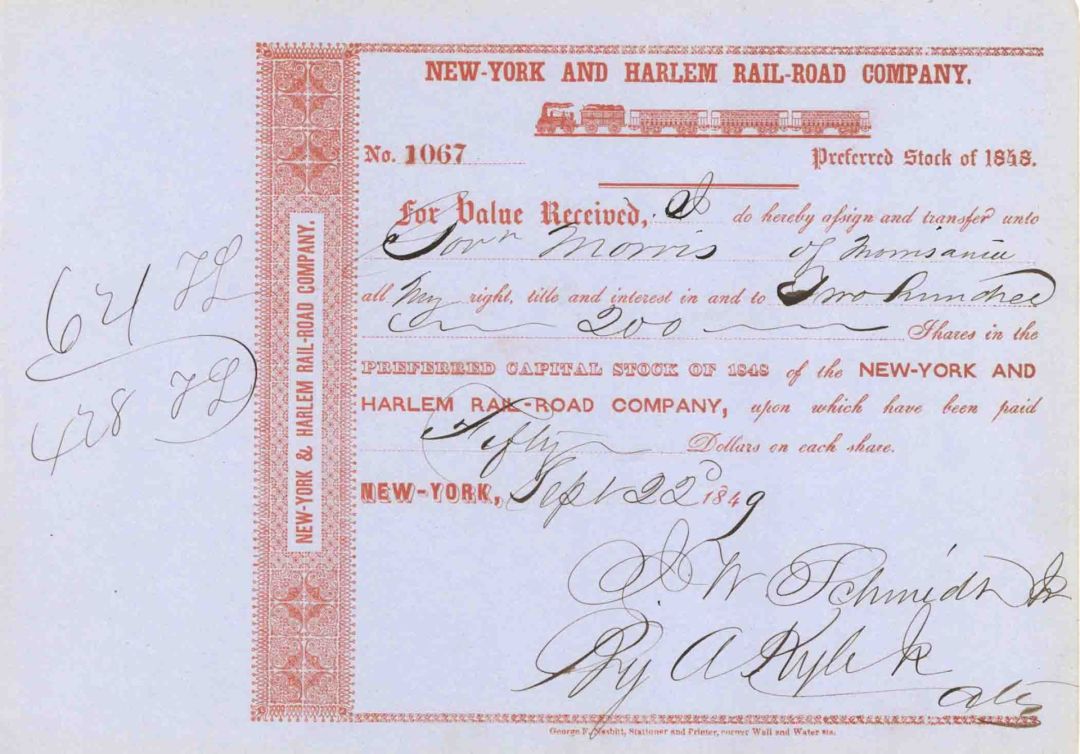 NEW-YORK AND HARLEM RAIL-ROAD COMPANY.
No. 1067
Preferred Stock of 1848.
For Value Received, I do hereby aſsign and transfer unto
Govr Morris of Morrisania
all My right, title and interest in and to Two hundred
200 Shares in the
PREFERRED CAPITAL STOCK OF 1848 of the NEW-YORK AND
HARLEM RAIL-ROAD COMPANY, upon which have been paid
Fifty Dollars on each share.
NEW-YORK, Sept 22d 1849
J W Schmidt Jr
By A Kyle Jr
Atty
George F. Nesbitt, Stationer and Printer, corner Wall and Water sts.
NEW-YORK & HARLEM RAIL-ROAD COMPANY.